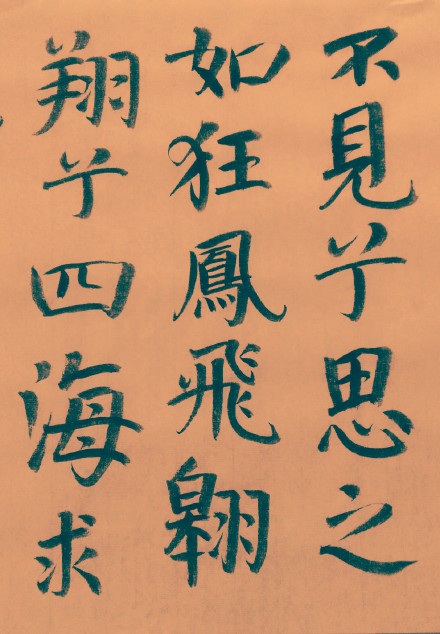 不見兮思之
如狂鳳飛翱
翔兮四海求